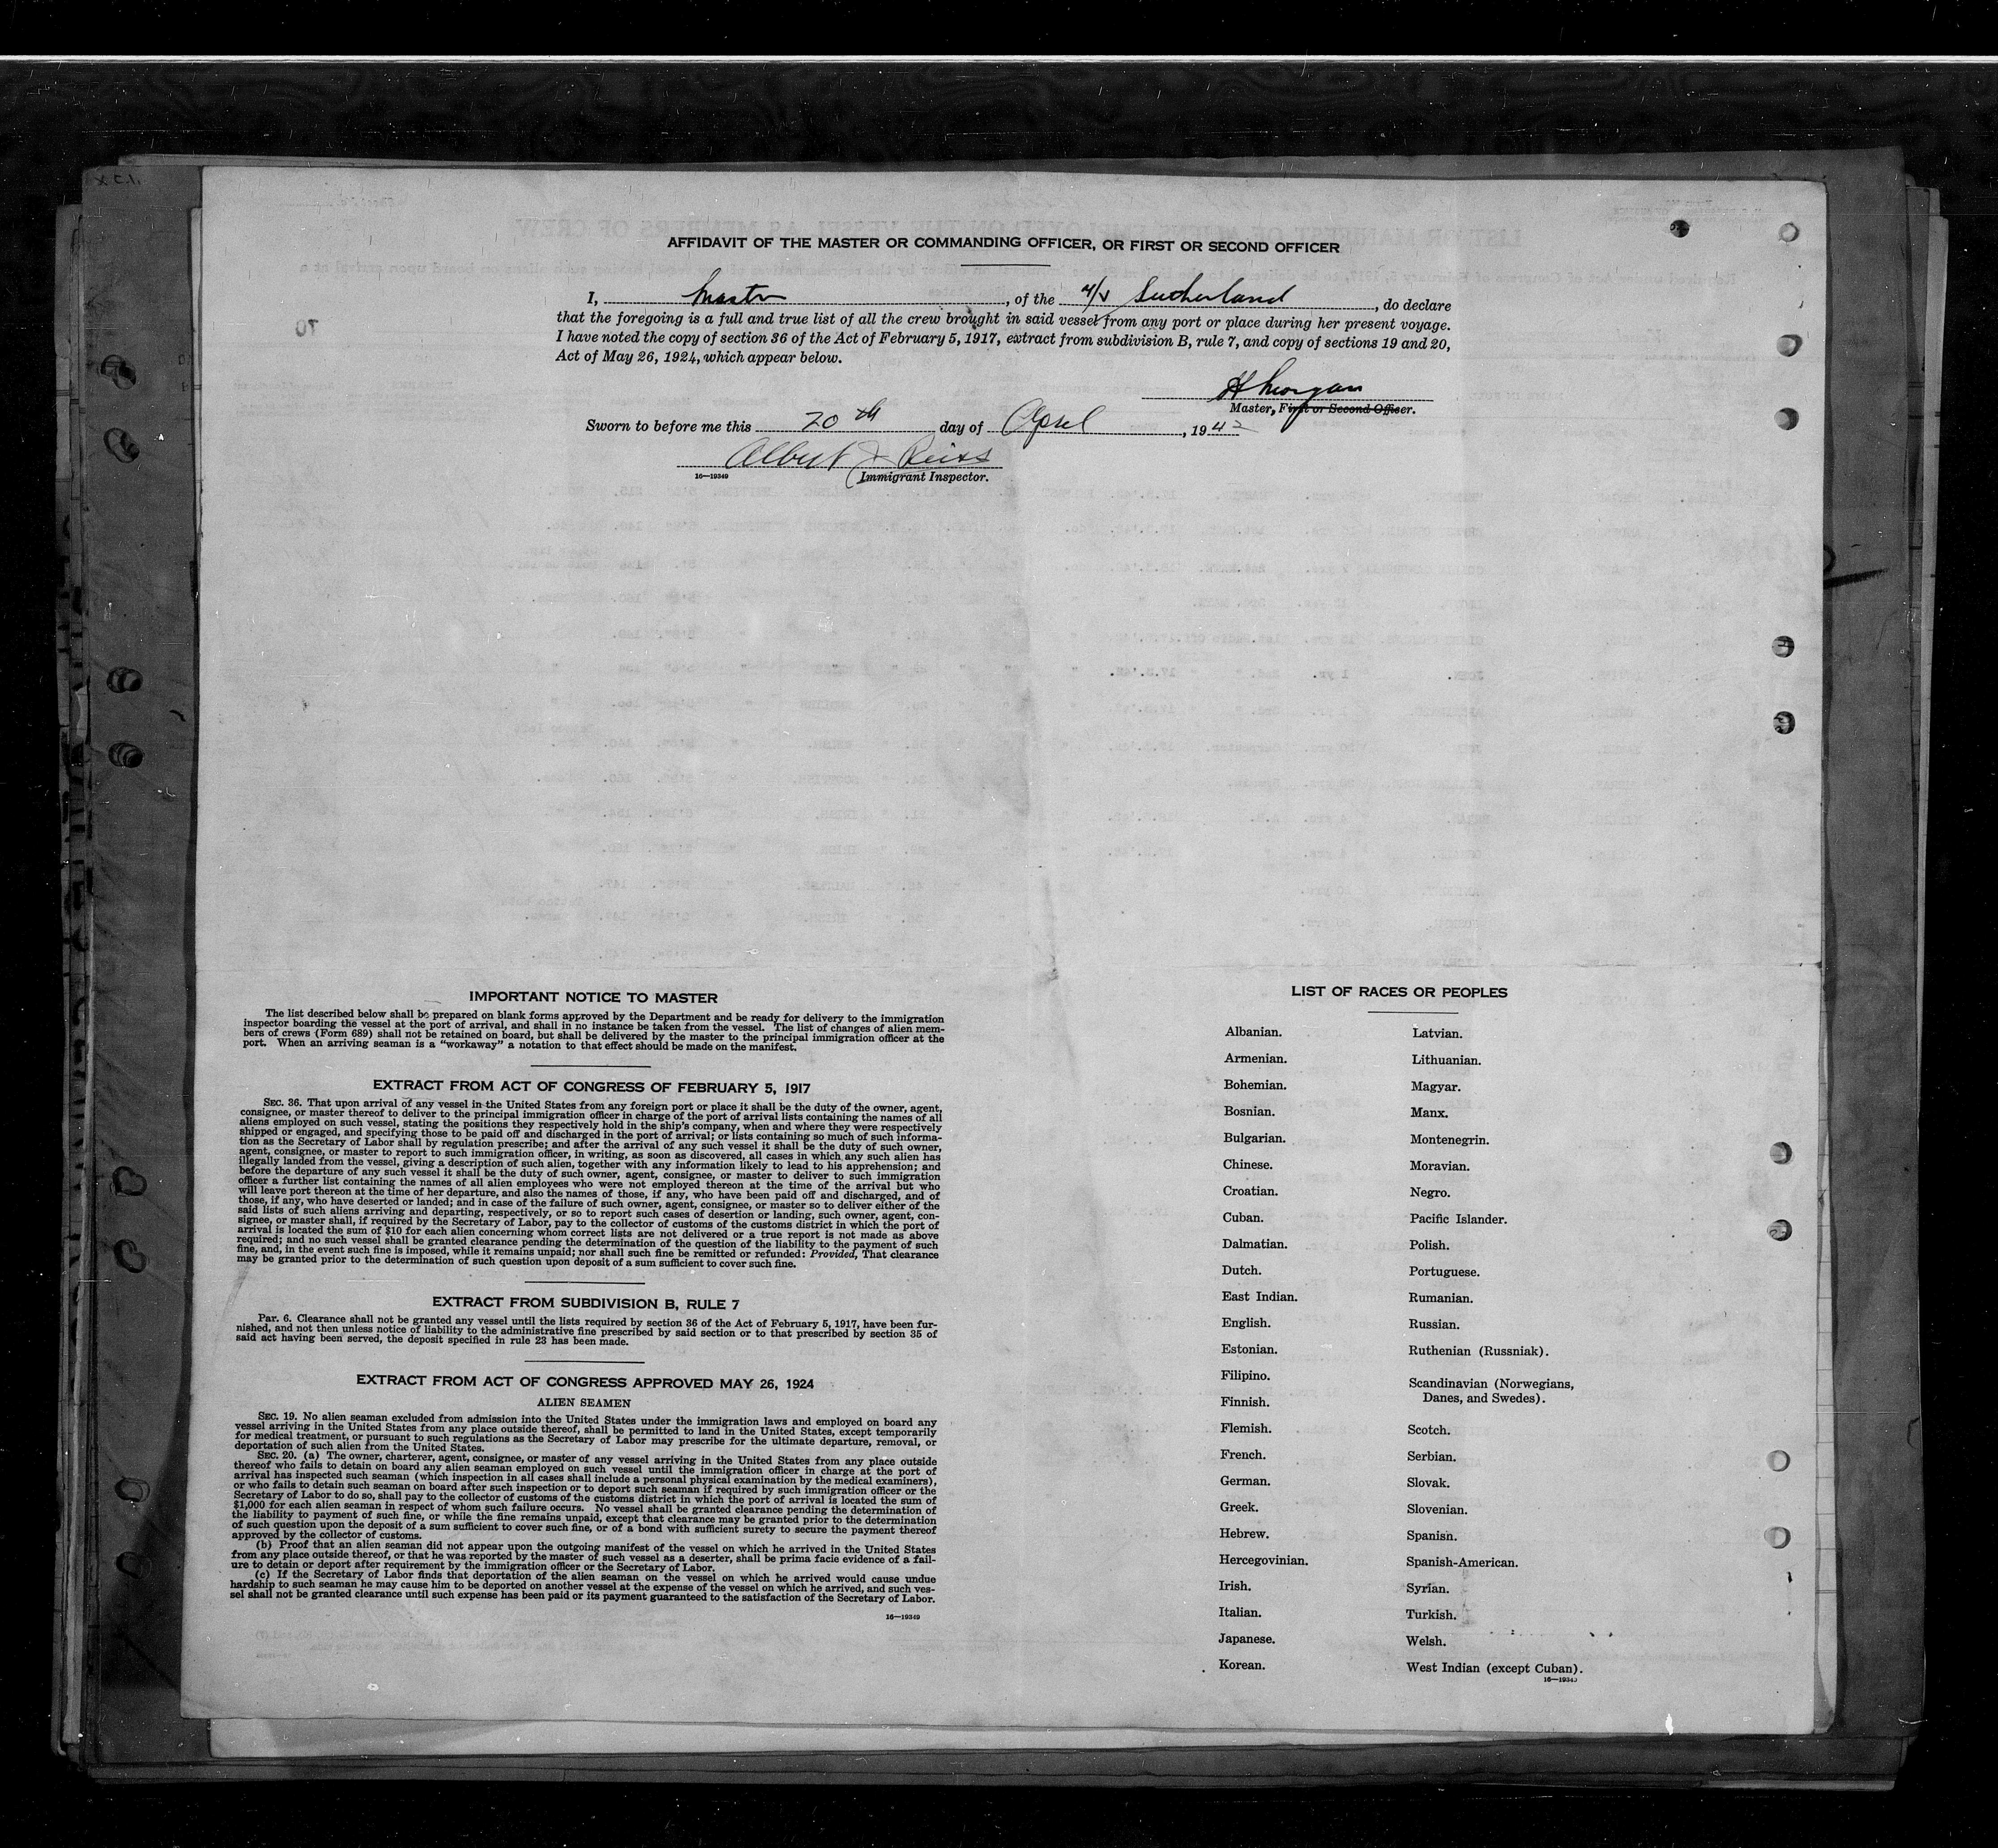 AFFIDAVIT OF THE MASTER OR COMMANDING OFFICER, OR FIRST OR SECOND OFFICER
I, Master, of the M/V Sutherland, do declare
that the foregoing is a full and true list of all the crew brought in said vessel from any port or place during her present voyage.
I have noted the copy of section 36 of the Act of February 5, 1917, extract from subdivision B, rule 7, and copy of sections 19 and 20,
Act of May 26, 1924, which appear below.
H Morgan
Master, First or Second Officer.
Sworn to before me this 20th day of April, 1942
Albert J Reiss
16—19349 Immigrant Inspector.
70
IMPORTANT NOTICE TO MASTER
The list described below shall be prepared on blank forms approved by the Department and be ready for delivery to the immigration
inspector boarding the vessel at the port of arrival, and shall in no instance be taken from the vessel. The list of changes of alien mem-
bers of crews (Form 689) shall not be retained on board, but shall be delivered by the master to the principal immigration officer at the
port. When an arriving seaman is a "workaway" a notation to that effect should be made on the manifest.
EXTRACT FROM ACT OF CONGRESS OF FEBRUARY 5, 1917
SEC. 36. That upon arrival of any vessel in the United States from any foreign port or place it shall be the duty of the owner, agent,
consignee, or master thereof to deliver to the principal immigration officer in charge of the port of arrival lists containing the names of all
aliens employed on such vessel, stating the positions they respectively hold in the ship's company, when and where they were respectively
shipped or engaged, and specifying those to be paid off and discharged in the port of arrival; or lists containing so much of such informa-
tion as the Secretary of Labor shall by regulation prescribe; and after the arrival of any such vessel it shall be the duty of such owner,
agent, consignee, or master to report to such immigration officer, in writing, as soon as discovered, all cases in which any such alien has
illegally landed from the vessel, giving a description of such alien, together with any information likely to lead to his apprehension; and
before the departure of any such vessel it shall be the duty of such owner, agent, consignee, or master to deliver to such immigration
officer a further list containing the names of all alien employees who were not employed thereon at the time of the arrival but who
will leave port thereon at the time of her departure, and also the names of those, if any, who have been paid off and discharged, and of
those, if any, who have deserted or landed; and in case of the failure of such owner, agent, consignee, or master so to deliver either of the
said lists of such aliens arriving and departing, respectively, or so to report such cases of desertion or landing, such owner, agent, con-
signee, or master shall, if required by the Secretary of Labor, pay to the collector of customs of the customs district in which the port of
arrival is located the sum of $10 for each alien concerning whom correct lists are not delivered or a true report is not made as above
required; and no such vessel shall be granted clearance pending the determination of the question of the liability to the payment of such
fine, and, in the event such fine is imposed, while it remains unpaid; nor shall such fine be remitted or refunded: Provided, That clearance
may be granted prior to the determination of such question upon deposit of a sum sufficient to cover such fine.
EXTRACT FROM SUBDIVISION B, RULE 7
Par. 6. Clearance shall not be granted any vessel until the lists required by section 36 of the Act of February 5, 1917, have been fur-
nished, and not then unless notice of liability to the administrative fine prescribed by said section or to that prescribed by section 35 of
said act having been served, the deposit specified in rule 23 has been made.
EXTRACT FROM ACT OF CONGRESS APPROVED MAY 26, 1924
ALIEN SEAMEN
SEC. 19. No alien seaman excluded from admission into the United States under the immigration laws and employed on board any
vessel arriving in the United States from any place outside thereof, shall be permitted to land in the United States, except temporarily
for medical treatment, or pursuant to such regulations as the Secretary of Labor may prescribe for the ultimate departure, removal, or
deportation of such alien from the United States.
SEC. 20. (a) The owner, charterer, agent, consignee, or master of any vessel arriving in the United States from any place outside
thereof who fails to detain on board any alien seaman employed on such vessel until the immigration officer in charge at the port of
arrival has inspected such seaman (which inspection in all cases shall include a personal physical examination by the medical examiners),
or who fails to detain such seaman on board after such inspection or to deport such seaman if required by such immigration officer or the
Secretary of Labor to do so, shall pay to the collector of customs of the customs district in which the port of arrival is located the sum of
$1,000 for each alien seaman in respect of whom such failure occurs. No vessel shall be granted clearance pending the determination of
the liability to payment of such fine, or while the fine remains unpaid, except that clearance may be granted prior to the determination
of such question upon the deposit of a sum sufficient to cover such fine, or of a bond with sufficient surety to secure the payment thereof
approved by the collector of customs.
(b) Proof that an alien seaman did not appear upon the outgoing manifest of the vessel on which he arrived in the United States
from any place outside thereof, or that he was reported by the master of such vessel as a deserter, shall be prima facie evidence of a fail-
ure to detain or deport after requirement by the immigration officer or the Secretary of Labor.
(c) If the Secretary of Labor finds that deportation of the alien seaman on the vessel on which he arrived would cause undue
hardship to such seaman he may cause him to be deported on another vessel at the expense of the vessel on which he arrived, and such ves-
sel shall not be granted clearance until such expense has been paid or its payment guaranteed to the satisfaction of the Secretary of Labor.
16—19349
LIST OF RACES OR PEOPLES
Albanian.
Armenian.
Bohemian.
Bosnian.
Bulgarian.
Chinese.
Croatian.
Cuban.
Dalmatian.
Dutch.
East Indian.
English.
Estonian.
Filipino.
Finnish.
Flemish.
French.
German.
Greek.
Hebrew.
Hercegovinian.
Irish.
Italian.
Japanese.
Korean.
Latvian.
Lithuanian.
Magyar.
Manx.
Montenegrin.
Moravian.
Negro.
Pacific Islander.
Polish.
Portuguese.
Rumanian.
Russian.
Ruthenian (Russniak).
Scandinavian (Norwegians,
Danes, and Swedes).
Scotch.
Serbian.
Slovak.
Slovenian.
Spanish.
Spanish-American.
Syrian.
Turkish.
Welsh.
West Indian (except Cuban).
16—19349